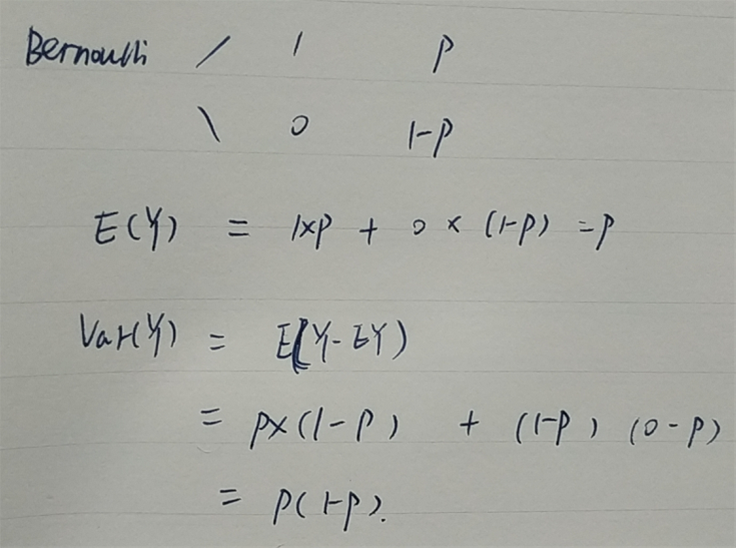 Bernoulli / 1 p
\ 0 1-p
E(Y) = 1×p + 0 × (1-p) = p
Var(Y) = E(Y-EY)
= p×(1-p) + (1-p) (0-p)
= p(1-p).